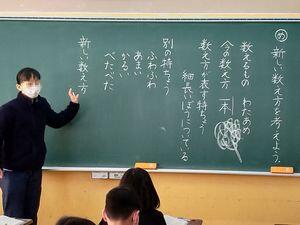 め 新しい数え方を考えよう。
数えるもの わたあめ
今の数え方 一本
数え方が表す特ちょう
細長いぼうについている
別の特ちょう
ふわふわ
あまい
かるい
べたべた
新しい数え方